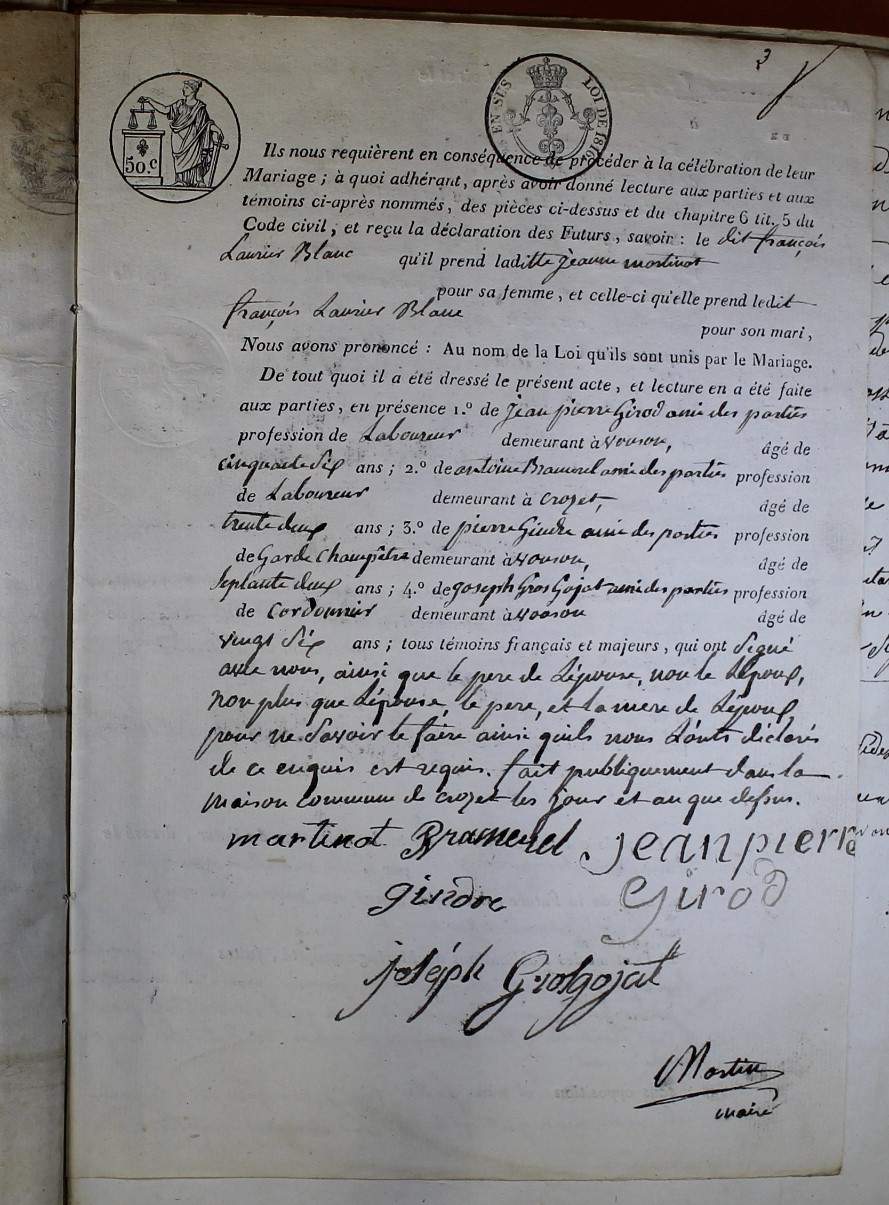 3
50.c
EN SUS
LOI DE 1816
Ils nous requièrent en conséquence de procéder à la célébration de leur
Mariage ; à quoi adhérant, après avoir donné lecture aux parties et aux
témoins ci-après nommés, des pièces ci-dessus et du chapitre 6 tit. 5 du
Code civil, et reçu la déclaration des Futurs, savoir : le dit françois
Laurier Blanc qu'il prend laditte jeanne martinot
pour sa femme, et celle-ci qu'elle prend ledit
françois Laurier Blanc
pour son mari,
Nous avons prononcé : Au nom de la Loi qu'ils sont unis par le Mariage.
De tout quoi il a été dressé le présent acte, et lecture en a été faite
aux parties, en présence 1.º de jean pierre Girod ami des parties
profession de Laboureur demeurant à vouson, âgé de
cinquante Six ans ; 2.º de antoine Bramerel ami des parties profession
de Laboureur demeurant à crozet, âgé de
trente deux ans ; 3.º de pierre Gindre ami des parties profession
de Garde Champêtre demeurant à vouson, âgé de
Septante deux ans ; 4.º de joseph Gros Gojat ami des parties profession
de Cordonnier demeurant à vouson âgé de
vingt Six ans ; tous témoins français et majeurs, qui ont Signé
avec nous, ainsi que le pere de Lépouse, non le Lépoux,
non plus que Lépouse, le pere, et la mere de Lépoux
pour ne Savoir le faire ainsi quils nous L'onts déclarés
de ce enquis est requis. fait publiquement dans la
maison commune de crozet les jour et an que dessus.
martinot Bramerel jean pierre
gindre Girod
joséph Grosgojat
Martin
maire